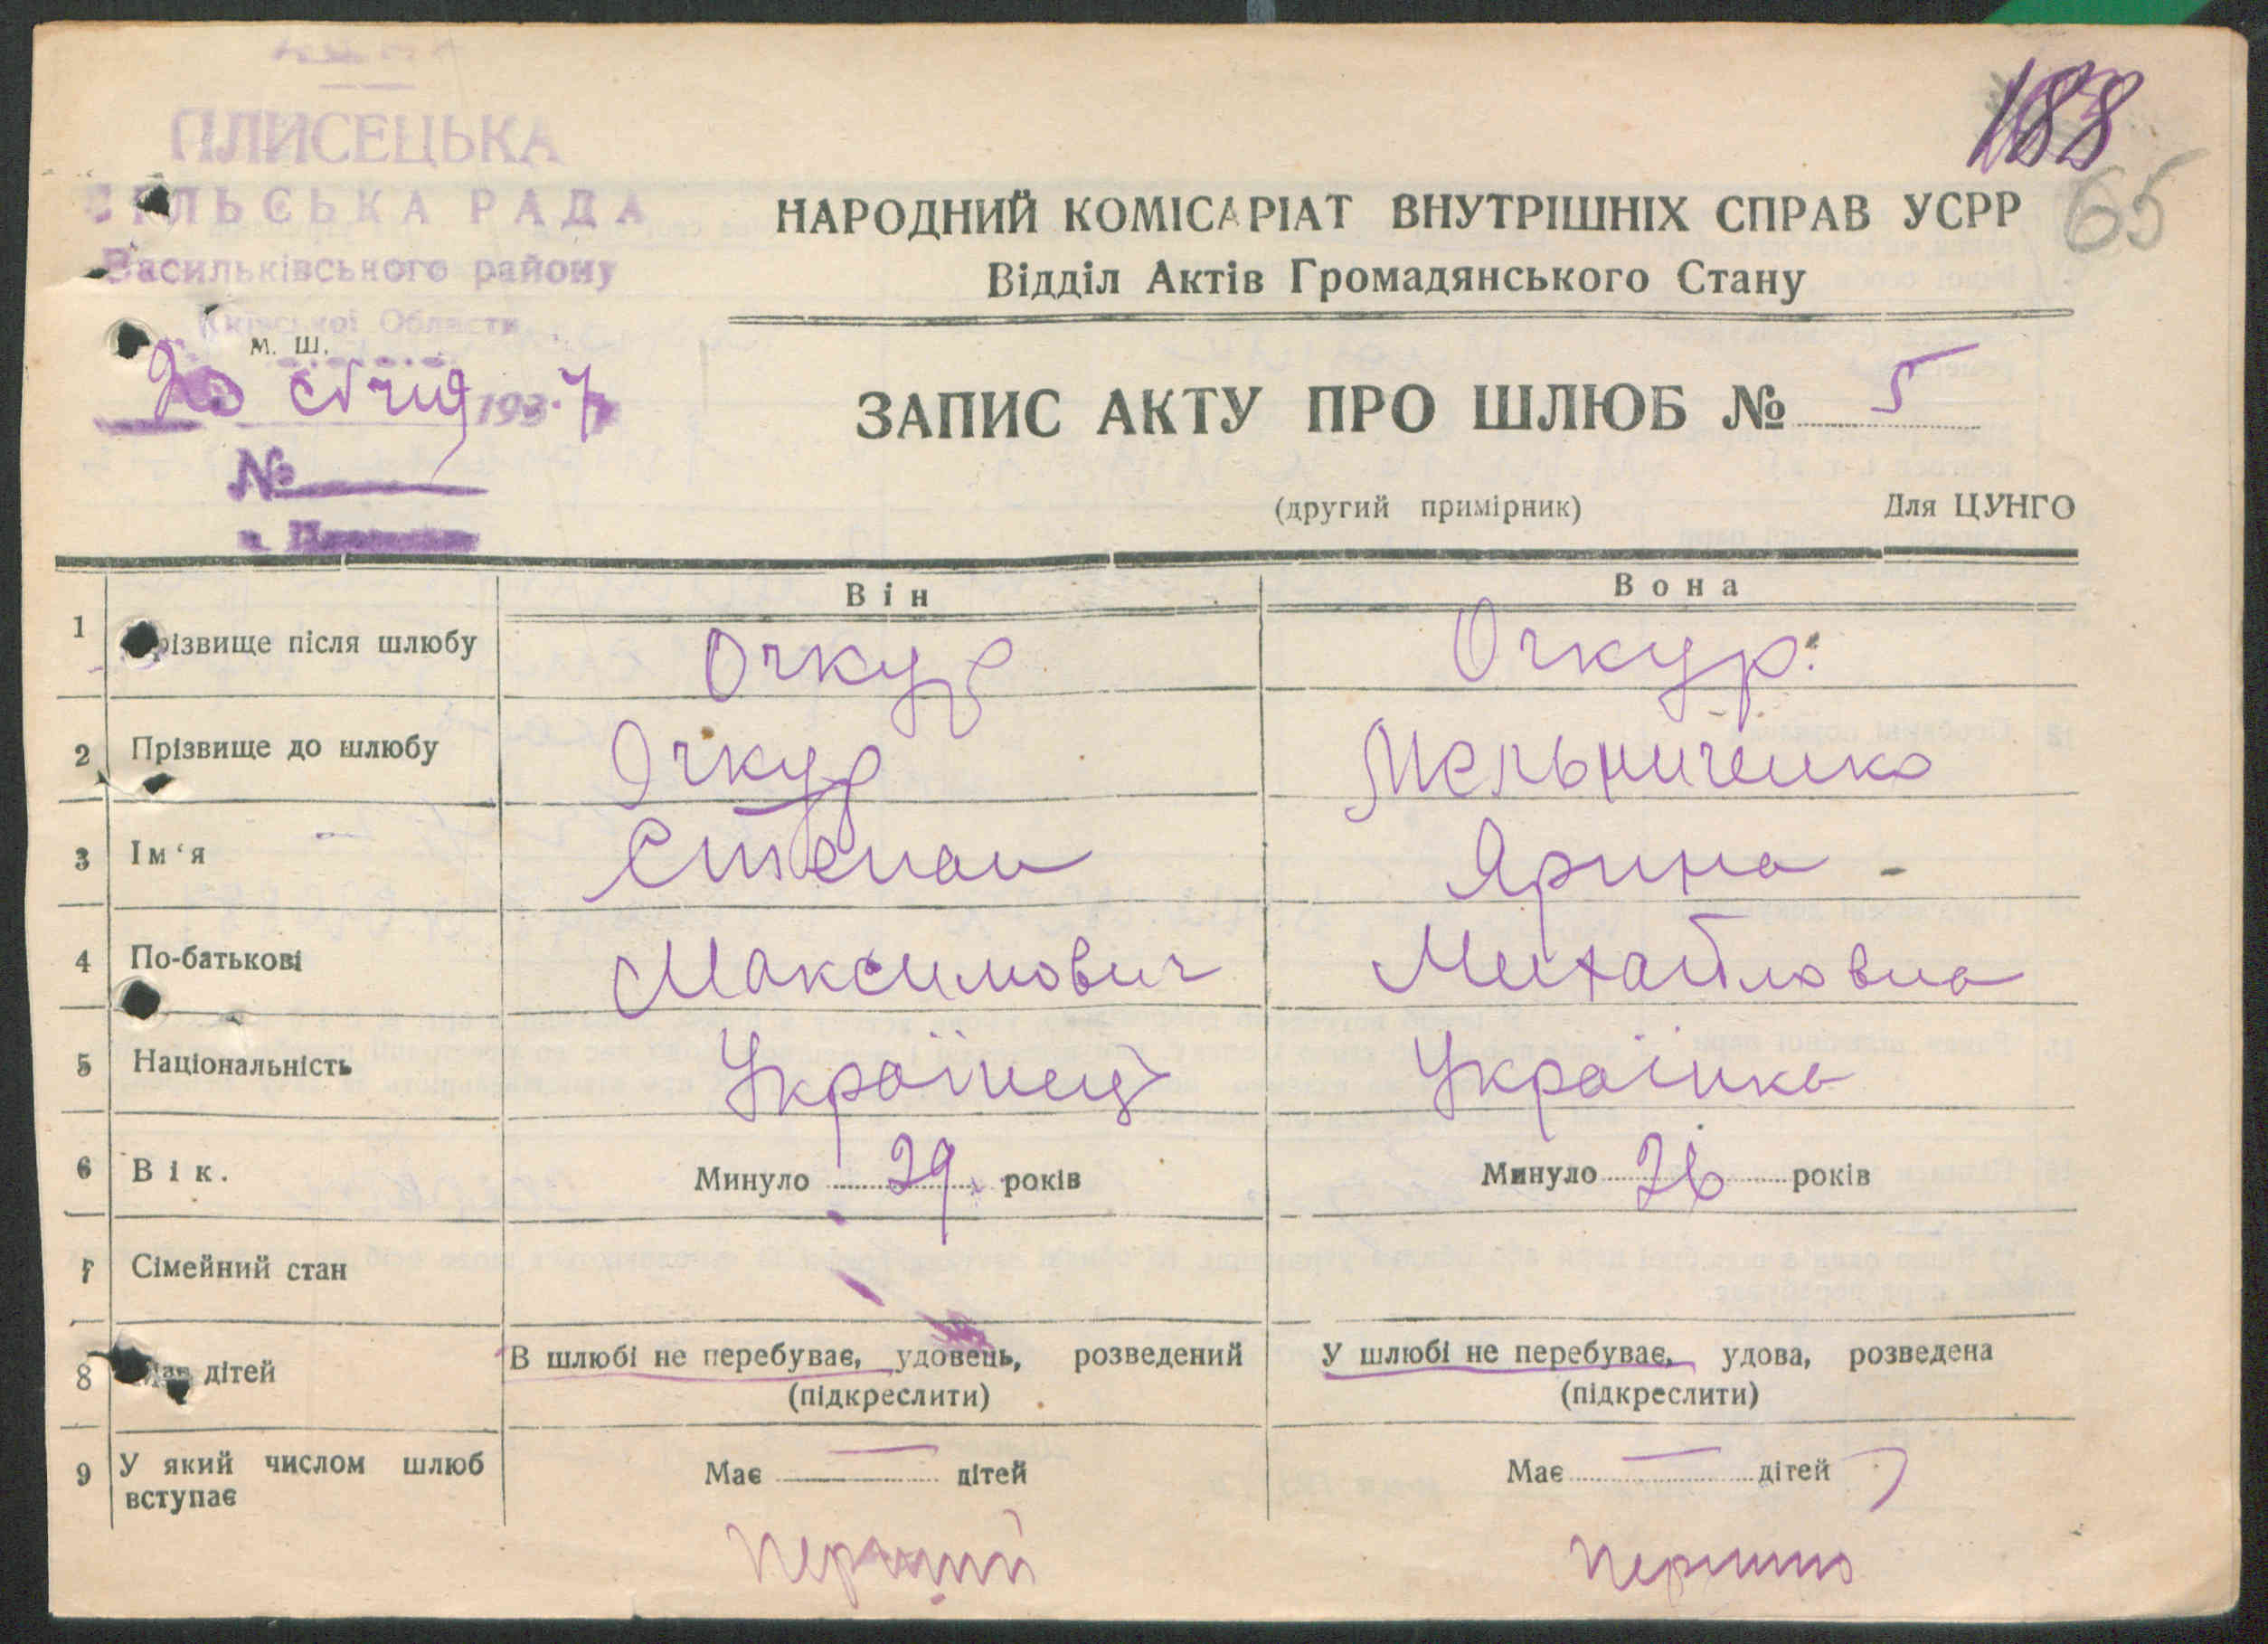 ПЛИСЕЦЬКА
СІЛЬСЬКА РАДА
Васильківського району
Київської Области
м. ш.
20 січня 1937
№
188
65
НАРОДНИЙ КОМІСАРІАТ ВНУТРІШНІХ СПРАВ УСРР
Відділ Актів Громадянського Стану
ЗАПИС АКТУ ПРО ШЛЮБ № 5
(другий примірник) Для ЦУНГО
Він Вона
1 Прізвище після шлюбу Очкур Очкур.
2 Прізвище до шлюбу Очкур Мельниченко
3 Ім‘я Степан Ярина
4 По-батькові Максимович Михайловна
5 Національність Українец Українка
6 Вік. Минуло 29 років Минуло 26 років
7 Сімейний стан
8 Має дітей В шлюбі не перебуває, удовець, розведений У шлюбі не перебуває, удова, розведена
(підкреслити) (підкреслити)
9 У який числом шлюб вступає Має — дітей Має — дітей
перший першио